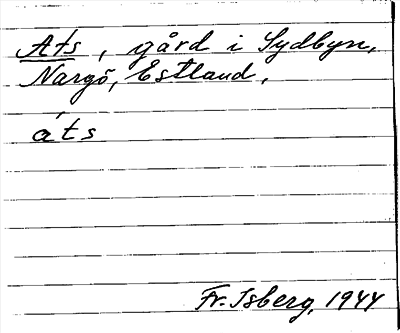 Ats, gård i Sydbyn,
Nargö, Estland.
áts
Fr. Isberg, 1944